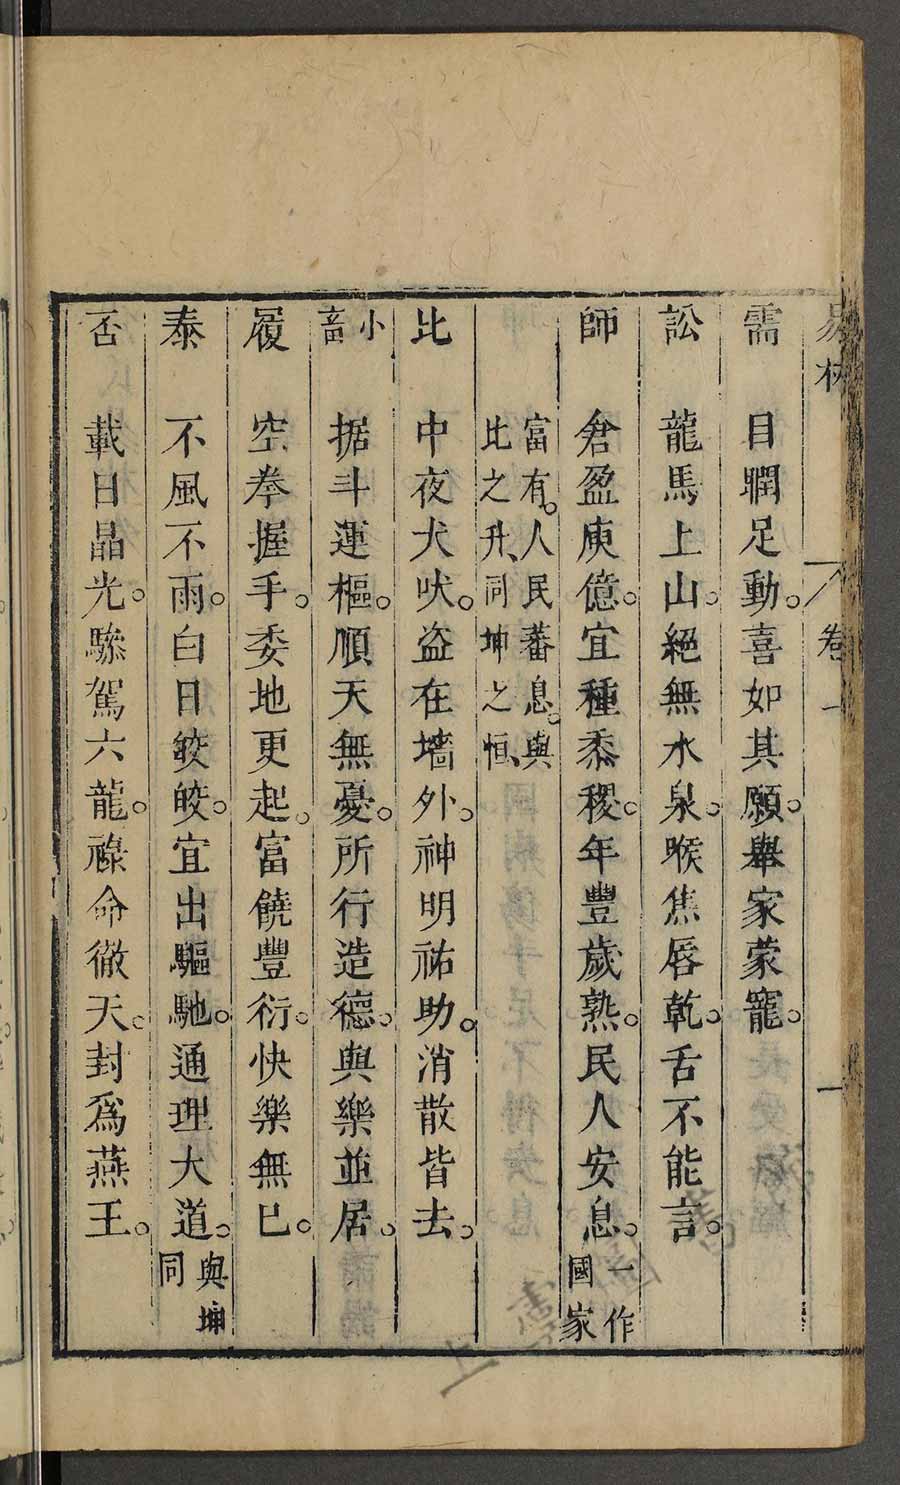 易林 卷一 一
需 目瞤足動。喜如其願。舉家蒙寵。
訟 龍馬上山。絕無水泉。喉焦唇乾。舌不能言。
師 倉盈庾億。宜種黍稷。年豐歲熟。民人安息。一作國家
富有。人民蕃息。與
比之升、同坤之恒、
比 中夜犬吠。盜在墻外。神明祐助。消散皆去。
小畜 据斗運樞。順天無憂。所行造德。與樂並居。
履 空拳握手。委地更起。富饒豐衍。快樂無已。
泰 不風不雨。白日皎皎。宜出驅馳。通理大道。與坤同
否 載日晶光。驂駕六龍。祿命徹天。封爲燕王。